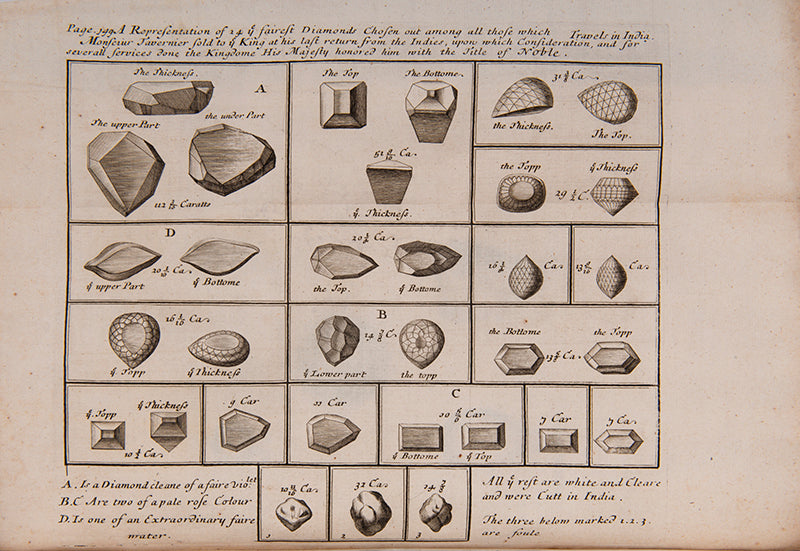 Page. 149. A Representation of 24 yͤ fairest Diamonds Chosen out among all those which Travels in India.
Monseiur Tavernier sold to yͤ King at his last return from the Indies, upon which Consideration, and for
severall services done the Kingdome His Majesty honored him with the Title of Noble.
The Thickness. A
The upper Part the under Part
112 3/16 Caratts
The Top The Bottome
51 9/16 Ca.
yͤ Thickness.
31 Ca
the Thickness. The Top.
the Topp yͤ Thickness
29 1/2 C.
D
20 Ca.
yͤ upper Part yͤ Bottome
20 1/4 Ca.
the Top. yͤ Bottome
16 Ca.
13 Ca.
16 1/16 Ca
yͤ Topp yͤ Thickness
B
14 C.
yͤ Lower part the topp
the Bottome the Topp
13 Ca
yͤ Topp yͤ Thickness
10 Ca.
9 Car
11 Car
C
10 Car
yͤ Bottome yͤ Top
7 Car
7 Ca.
A. Is a Diamond cleane of a faire violet
B.C Are two of a pale rose Colour
D. Is one of an Extraordinary faire
water.
10 Ca.
1
32 Ca
2
24
3
All yͤ rest are white and Cleare
and were Cutt in India.
The three below marked 1.2.3.
are foule